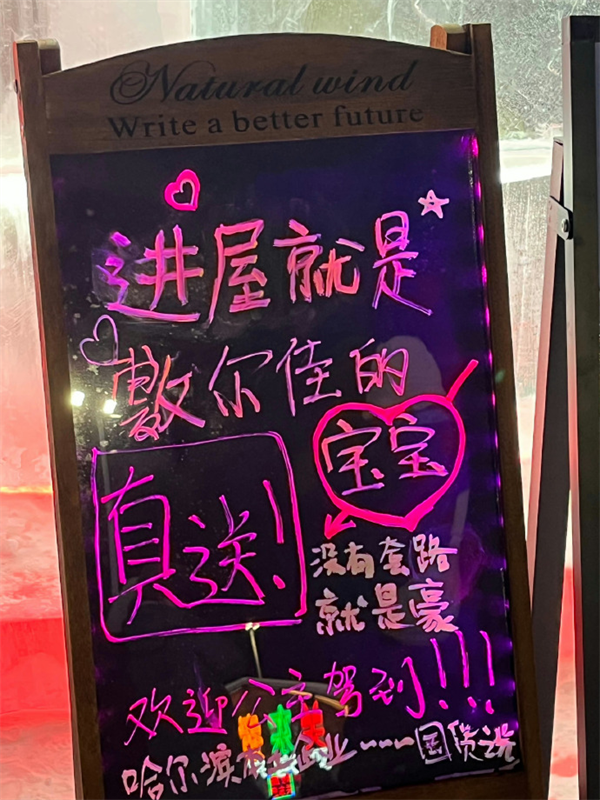 Natural wind
Write a better future
进屋就是
敷尔佳的
宝宝
真送!
没有套路
就是豪
欢迎公主驾到!!!
哈尔滨 企业~~~国货之光